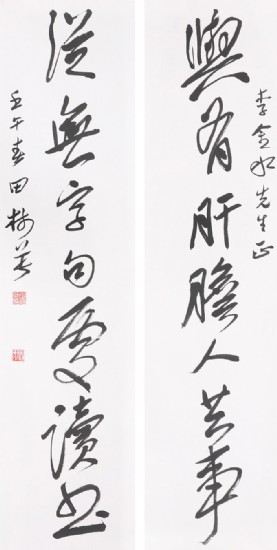 李金水先生正
與有肝膽人共事
從無字句處讀書
壬午春田樹萇